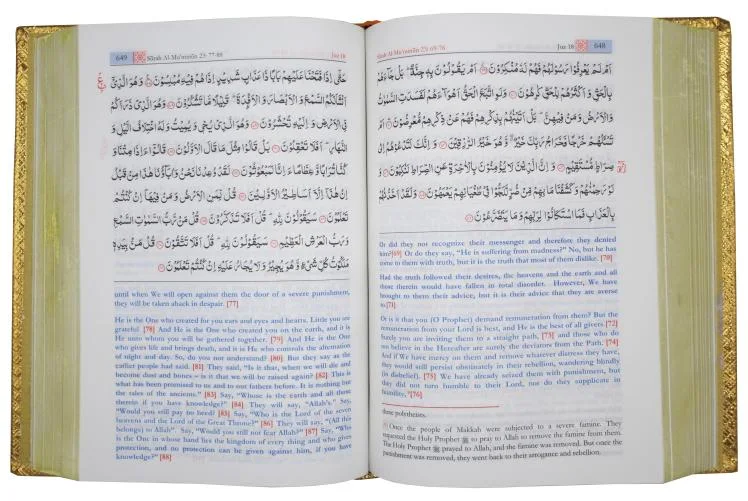 Sūrah Al-Mu'minūn 23: 69-76 Juz 18 648
اَمْ لَمْ يَعْرِفُوْا رَسُوْلَهُمْ فَهُمْ لَهٗ مُنْكِرُوْنَ اَمْ يَقُوْلُوْنَ بِهٖ جِنَّةٌ ؕ بَلْ جَآءَهُمْ
بِالْحَقِّ وَ اَكْثَرُهُمْ لِلْحَقِّ كٰرِهُوْنَ وَلَوِ اتَّبَعَ الْحَقُّ اَهْوَآءَهُمْ لَفَسَدَتِ السَّمٰوٰتُ
وَ الْاَرْضُ وَمَنْ فِيْهِنَّ ؕ بَلْ اَتَيْنٰهُمْ بِذِكْرِهِمْ فَهُمْ عَنْ ذِكْرِهِمْ مُّعْرِضُوْنَ اَمْ
تَسْـَٔلُهُمْ خَرْجًا فَخَرَاجُ رَبِّكَ خَيْرٌ ۖ وَّهُوَ خَيْرُ الرّٰزِقِيْنَ وَ اِنَّكَ لَتَدْعُوْهُمْ اِلٰى
صِرَاطٍ مُّسْتَقِيْمٍ وَ اِنَّ الَّذِيْنَ لَا يُؤْمِنُوْنَ بِالْاٰخِرَةِ عَنِ الصِّرَاطِ لَنٰكِبُوْنَ وَ
لَوْ رَحِمْنٰهُمْ وَكَشَفْنَا مَا بِهِمْ مِّنْ ضُرٍّ لَّلَجُّوْا فِيْ طُغْيَانِهِمْ يَعْمَهُوْنَ وَلَقَدْ اَخَذْنٰهُمْ
بِالْعَذَابِ فَمَا اسْتَكَانُوْا لِرَبِّهِمْ وَمَا يَتَضَرَّعُوْنَ
Or did they not recognize their messenger and therefore they denied
him?[69] Or do they say, "He is suffering from madness?" No, but he has
come to them with truth, but it is the truth that most of them dislike. [70]
Had the truth followed their desires, the heavens and the earth and all
those therein would have fallen in total disorder. However, We have
brought to them their advice, but it is their advice that they are averse
to.[71]
Or is it that you (O Prophet) demand remuneration from them? But the
remuneration from your Lord is best, and He is the best of all givers.[72]
Surely you are inviting them to a straight path, [73] and those who do
not believe in the Hereafter are surely the deviators from the Path. [74]
And if We have mercy on them and remove whatever distress they have,
they would still persist obstinately in their rebellion, wandering blindly
(in disbelief). [75] We have already seized them with punishment, but
they did not turn humble to their Lord, nor do they supplicate in
humility,"[76]
these polytheists.
Once the people of Makkah were subjected to a severe famine. They
requested the Holy Prophet ﷺ to pray to Allah to remove the famine from them.
The Holy Prophet ﷺ prayed to Allah, and the famine was removed. But once the
punishment was removed, they went back to their arrogance and rebellion.
649 Sūrah Al-Mu'minūn 23: 77-88 Juz 18
حَتّٰٓى اِذَا فَتَحْنَا عَلَيْهِمْ بَابًا ذَا عَذَابٍ شَدِيْدٍ اِذَا هُمْ فِيْهِ مُبْلِسُوْنَ وَهُوَ الَّذِيْٓ
اَنْشَاَ لَكُمُ السَّمْعَ وَ الْاَبْصَارَ وَ الْاَفْـِٕدَةَ ؕ قَلِيْلًا مَّا تَشْكُرُوْنَ وَهُوَ الَّذِيْ ذَرَاَكُمْ
فِي الْاَرْضِ وَ اِلَيْهِ تُحْشَرُوْنَ وَهُوَ الَّذِيْ يُحْيٖ وَيُمِيْتُ وَلَهُ اخْتِلَافُ الَّيْلِ وَ
النَّهَارِ ؕ اَفَلَا تَعْقِلُوْنَ بَلْ قَالُوْا مِثْلَ مَا قَالَ الْاَوَّلُوْنَ قَالُوْٓا ءَاِذَا مِتْنَا وَ
كُنَّا تُرَابًا وَّ عِظَامًا ءَاِنَّا لَمَبْعُوْثُوْنَ لَقَدْ وُعِدْنَا نَحْنُ وَ اٰبَآؤُنَا هٰذَا مِنْ قَبْلُ
اِنْ هٰذَآ اِلَّآ اَسَاطِيْرُ الْاَوَّلِيْنَ قُلْ لِّمَنِ الْاَرْضُ وَمَنْ فِيْهَآ اِنْ كُنْتُمْ
تَعْلَمُوْنَ سَيَقُوْلُوْنَ لِلّٰهِ ؕ قُلْ اَفَلَا تَذَكَّرُوْنَ قُلْ مَنْ رَّبُّ السَّمٰوٰتِ السَّبْعِ
وَرَبُّ الْعَرْشِ الْعَظِيْمِ سَيَقُوْلُوْنَ لِلّٰهِ ؕ قُلْ اَفَلَا تَتَّقُوْنَ قُلْ مَنْۢ بِيَدِهٖ
مَلَكُوْتُ كُلِّ شَيْءٍ وَّهُوَ يُجِيْرُ وَلَا يُجَارُ عَلَيْهِ اِنْ كُنْتُمْ تَعْلَمُوْنَ
until when We will open against them the door of a severe punishment,
they will be taken aback in despair. [77]
He is the One who created for you ears and eyes and hearts. Little you are
grateful. [78] And He is the One who created you on the earth, and it is
He unto whom you will be gathered together. [79] And He is the One
who gives life and brings death, and it is He who controls the alternation
of night and day. So, do you not understand? [80] But they say as the
earlier people had said. [81] They said, "Is it that, when we will die and
become dust and bones – is it that we will be raised again? [82] This is
what has been promised to us and to our fathers before. It is nothing but
the tales of the ancients." [83] Say, "Whose is the earth and all those
therein if you have knowledge?" [84] They will say, "Allah's." Say,
"Would you still pay no heed? [85] Say, "Who is the Lord of the seven
heavens and the Lord of the Great Throne?" [86] They will say, "(All this
belongs) to Allah". Say, "Would you still not fear Allah?" [87] Say, "Who
is the One in whose hand lies the kingdom of every thing and who gives
protection, and no protection can be given against him, if you have
knowledge?" [88]